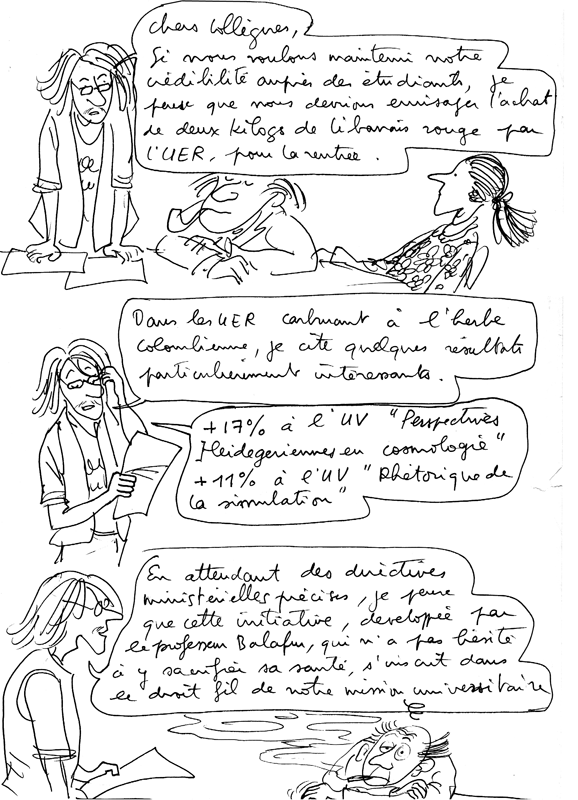 chers collègues,
Si nous voulons maintenir notre
crédibilité auprès des étudiants, je
pense que nous devrions envisager l'achat
de deux kilogs de libanais rouge par
l'UER, pour la rentrée.
Dans les UER carburant à l'herbe
colombienne, je cite quelques résultats
particulièrement intéressants.
+17% à l'UV "Perspectives
Heidegeriennes en cosmologie"
+11% à l'UV "Rhétorique de
la simulation"
En attendant des directives
ministérielles précises, je pense
que cette initiative, developpée par
le professeur Balafu, qui n'a pas hésité
à y sacrifier sa santé, s'inscrit dans
le droit fil de notre mission universitaire